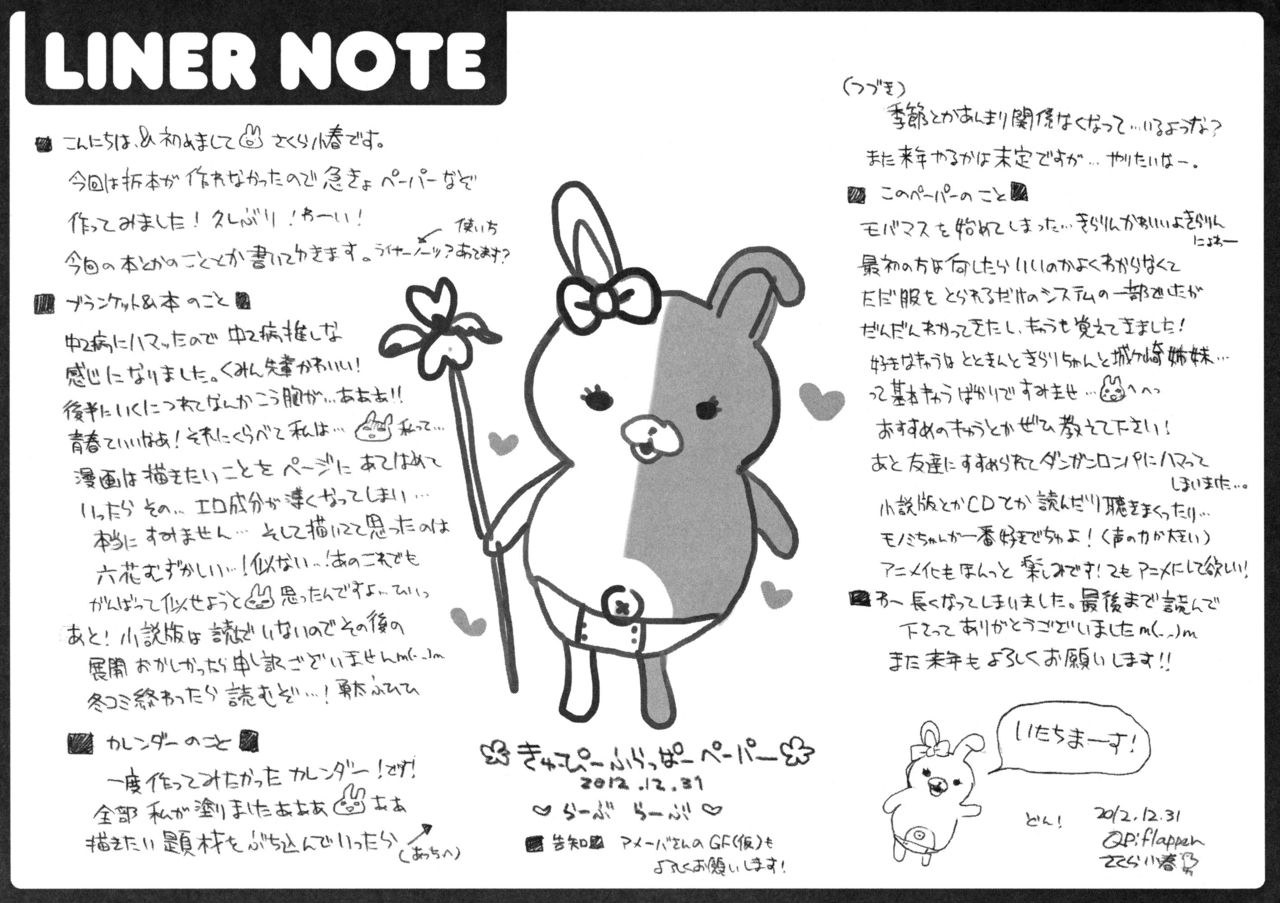 LINER NOTE
■ こんにちは、&初めまして さくら小春です。
今回は折本が作れなかったので急きょペーパーなぞ
作ってみました!久しぶり!わーい!
今回の本とかのこととか書いてゆきます。ライナーノーツ?あってます?
使いち
■ ブランケット&本のこと ■
中2病にハマったので中2病推しな
感じになりました。くみん先輩かわいい!
後半にいくにつれてなんかこう胸が…あああ!!
青春ていいなあ!それにくらべて私は… 私って…
漫画は描きたいことをページにあてはめて
いったらその…エロ成分が薄くなってしまい…
本当にすみません…そして描いてて思ったのは
六花むずかしい…!似ない…!あのこれでも
がんばって似せようと 思ったんですよ…ひいっ
あと!小説版は読んでいないのでその後の
展開おかしかったら申し訳ございませんm(..)m
冬コミ終わったら読むぞ…!勇太ふひひ
■ カレンダーのこと ■
一度作ってみたかったカレンダー!です!
全部私が塗りましたあああ ああ
描きたい題材をぶち込んでいったら
(あっちへ)
✿きゅーぴーふらっぱーペーパー✿
2012.12.31
♡らーぶ らーぶ♡
■ 告知 ■ アメーバさんのGF(仮)も
よろしくお願いします!
(つづき)
季節とかあんまり関係なくなって…いるような?
また来年やるかは未定ですが…やりたいなー。
■ このペーパーのこと ■
モバマスを始めてしまった…きらりんかわいいよきらりん
にょわー
最初の方は何したらいいのかよくわからなくて
ただ服をとられるだけのシステムの一部でしたが
だんだんわかってきたし、キャラも覚えてきました!
好きなキャラはとときんときらりちゃんと城ヶ崎姉妹…
って基本キャラばかりですみませ… へへっ
おすすめのキャラとかぜひ教えて下さい!
あと友達にすすめられてダンガンロンパにハマって
しまいました…。
小説版とかCDとか読んだり聴きまくったり…
モノミちゃんが一番好きでちゅよ!(声の力が大きい)
アニメ化もほんっと楽しみです!2もアニメにして欲しい!
■ わー長くなってしまいました。最後まで読んで
下さってありがとうございましたm(..)m
また来年もよろしくお願いします!!
いたちまーす!
どん!
2012.12.31
QP:flapper
さくら小春